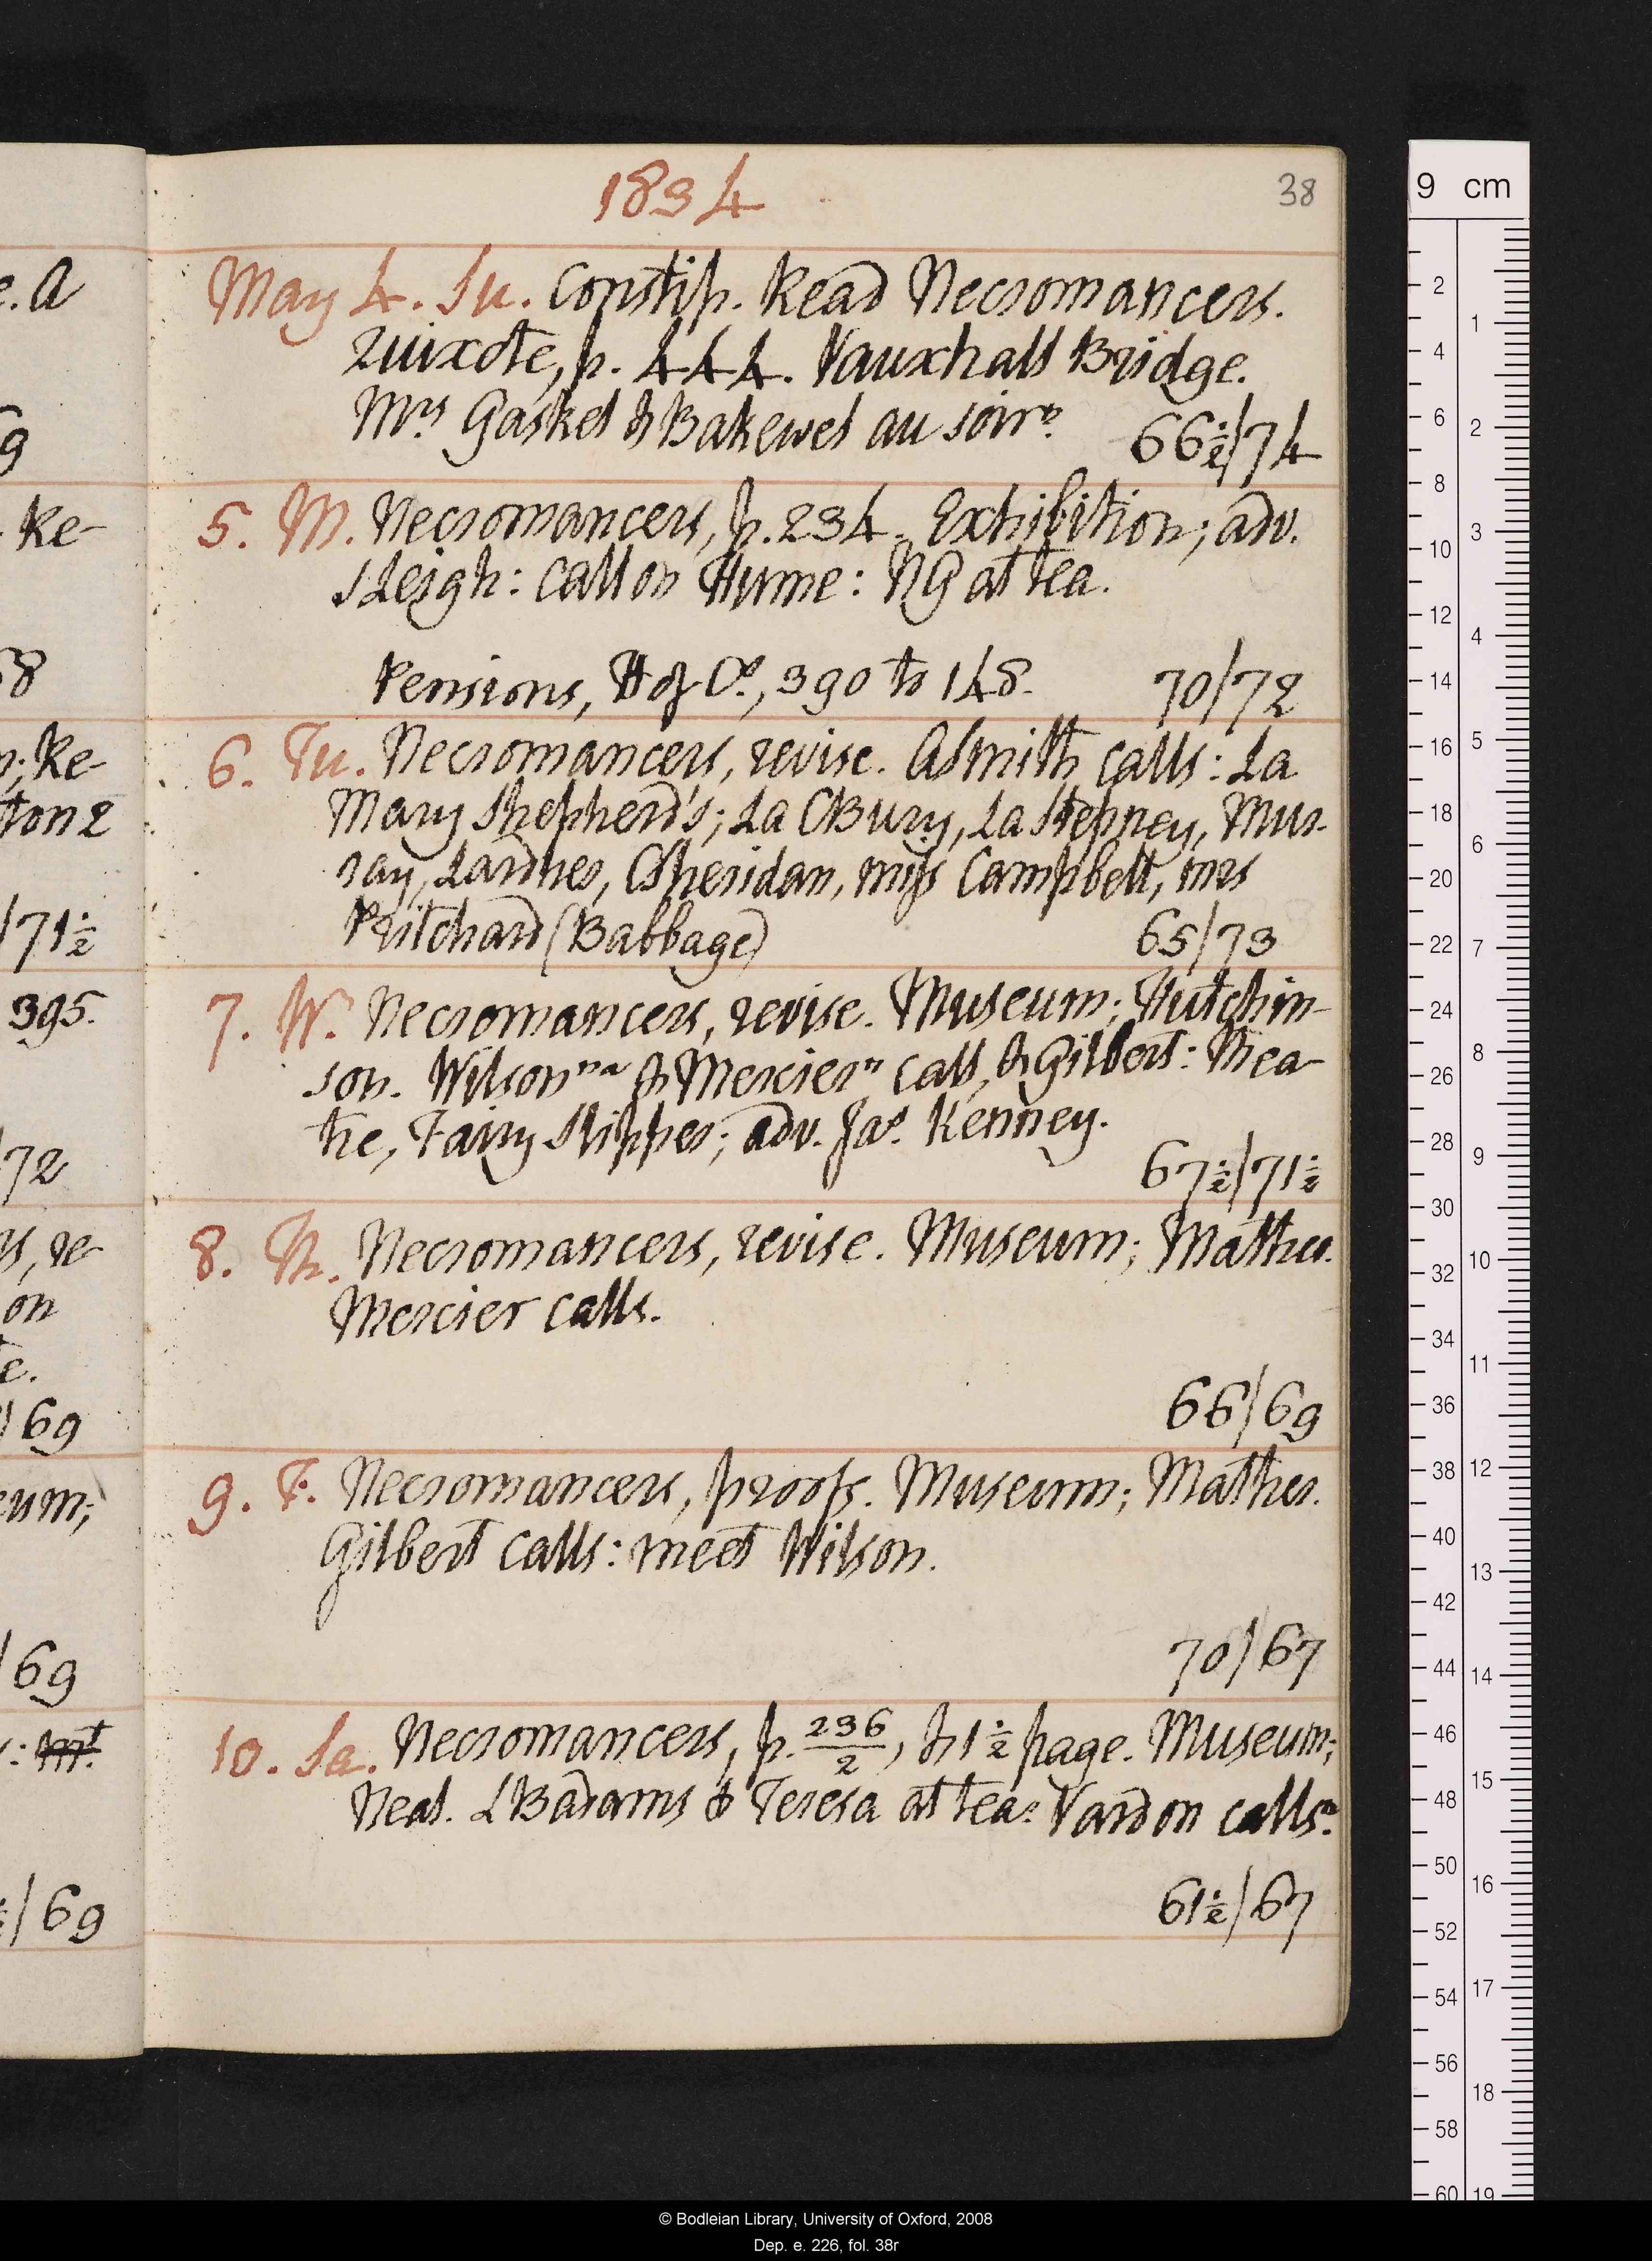 1834
38
May 4. Su. Constip. Read Necromancers.
Quixote, p. 444. Vauxhall Bridge.
Mrs Gaskel & Bakewel au soir.
66½/74
5. M. Necromancers, p. 234. Exhibition; adv.
SLeigh: call on Hume: NG at tea.
Pensions, H of Cs, 390 to 148. 70/72
6. Tu. Necromancers, revise. ASmith calls: La
Mary Shepherd's; La CBury, La Stepney, Mur-
ray, Lardner, CSheridan, miss Campbell, mrs
Pritchard (Babbage) 65/73
7. W. Necromancers, revise. Museum; Hutchin-
son. Wilson na & Mercier n call, & Gilbert: Thea-
tre, Fairy Slipper; adv. Jas. Kenney.
67½/71½
8. Th. Necromancers, revise. Museum; Mather.
Mercier calls.
66/69
9. F. Necromancers, proofs. Museum; Mather.
Gilbert calls: meet Wilson.
70/67
10. Sa. Necromancers, p. 236/2, & 1½ page. Museum;
Neal. LBadams & Teresa at tea: Vardon calls.
61½/67
e. A
9
Re-
58
n; Re-
ton 2
/71½
395.
72
rs, re-
on
e.
/69
eum;
/69
: Mt
/69
9 cm
2
4
6
8
10
12
14
16
18
20
22
24
26
28
30
32
34
36
38
40
42
44
46
48
50
52
54
56
58
60
1
2
3
4
5
6
7
8
9
10
11
12
13
14
15
16
17
18
19
© Bodleian Library, University of Oxford, 2008
Dep. e. 226, fol. 38r